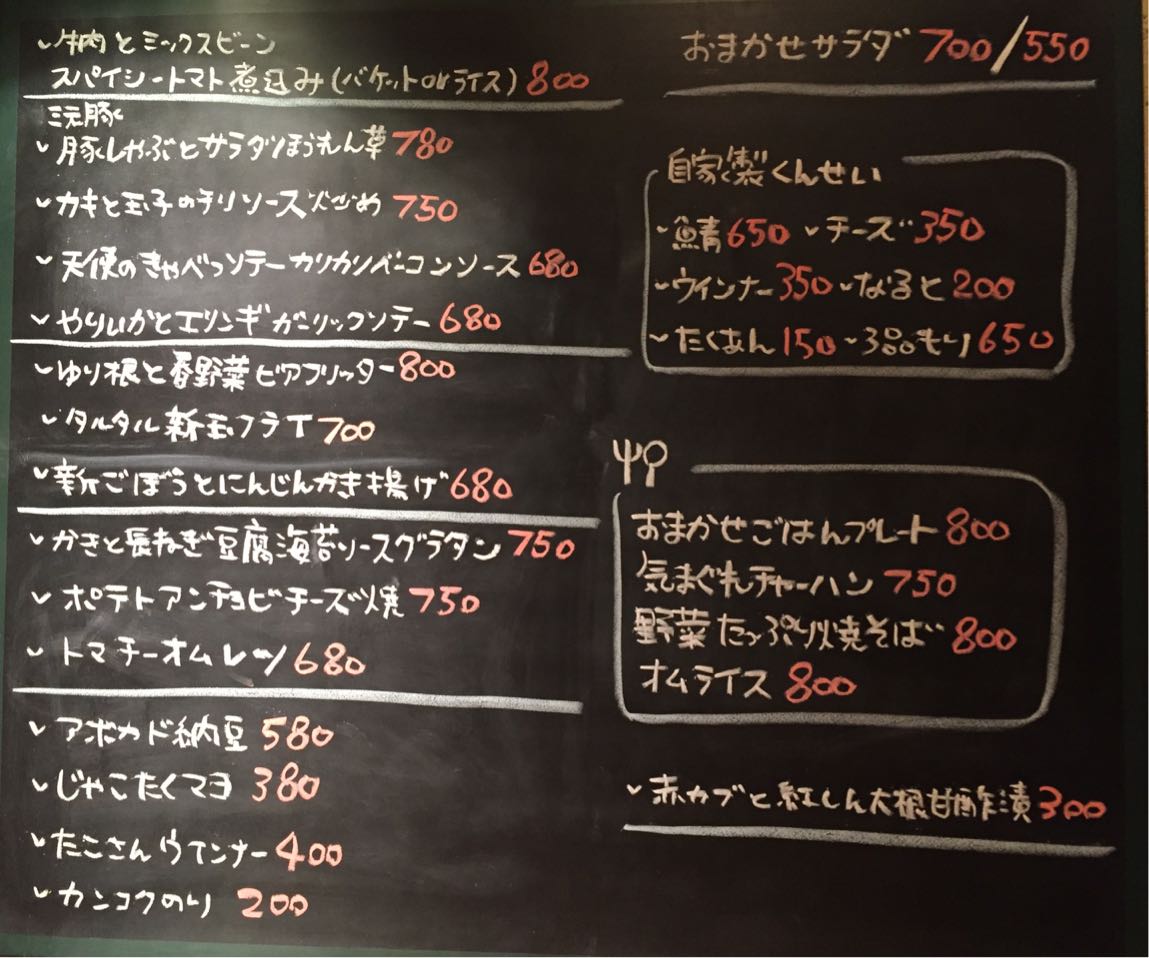 牛肉とミックスビーン
スパイシートマト煮込み(バケットorライス) 800
三元豚
豚しゃぶとサラダほうれん草 780
カキと玉子のチリソース炒め 750
天使のきゃべつソテーカリカリベーコンソース 680
やりいかとエリンギガーリックソテー 680
ゆり根と春野菜ビアフリッター 800
タルタル新玉フライ 700
新ごぼうとにんじんかき揚げ 680
かきと長ねぎ豆腐海苔ソースグラタン 750
ポテトアンチョビチーズ焼 750
トマチーオムレツ 680
アボカド納豆 580
じゃこたくマヨ 380
たこさんウインナー 400
カンコクのり 200
おまかせサラダ 700/550
自家製くんせい
鯖 650 チーズ 350
ウインナー 350 なると 200
たくあん 150 3品もり 650
おまかせごはんプレート 800
気まぐれチャーハン 750
野菜たっぷり焼そば 800
オムライス 800
赤カブと紅しん大根甘酢漬 300